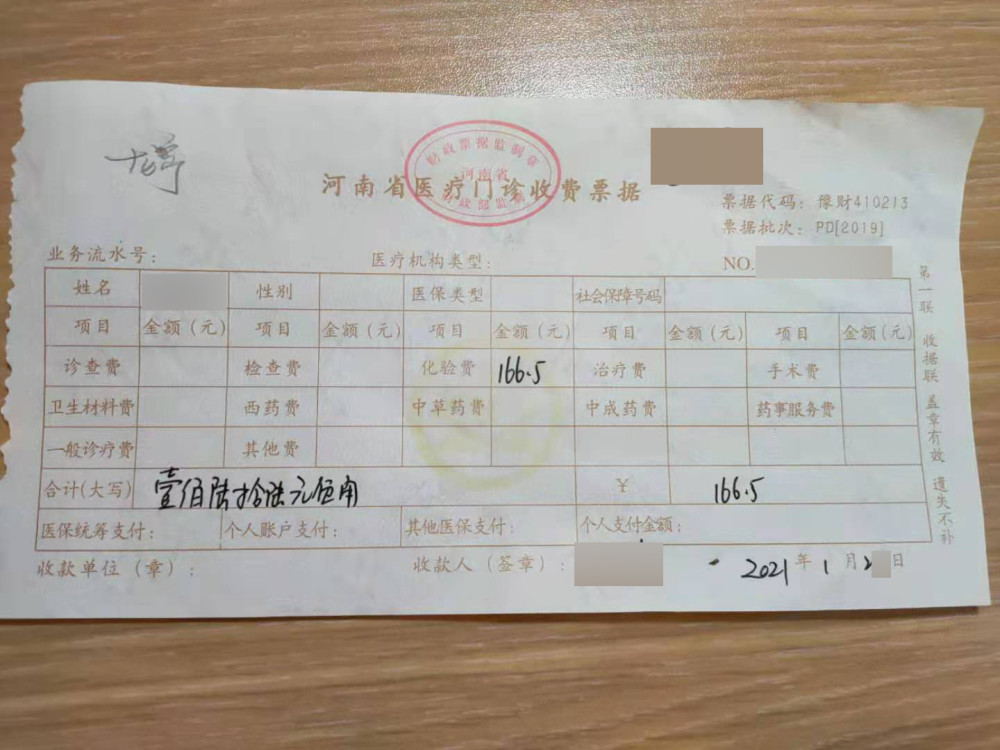 财政票据监制章
河南省
财政部监制
河南省医疗门诊收费票据
票据代码：豫财410213
票据批次：PD[2019]
业务流水号：
医疗机构类型：
NO.
姓名 性别 医保类型 社会保障号码
项目 金额（元） 项目 金额（元） 项目 金额（元） 项目 金额（元） 项目 金额（元）
诊查费 检查费 化验费 166.5 治疗费 手术费
卫生材料费 西药费 中草药费 中成药费 药事服务费
一般诊疗费 其他费
合计(大写) 壹佰陆拾陆元伍角 ￥ 166.5
医保统筹支付： 个人账户支付： 其他医保支付： 个人支付金额：
收款单位（章）： 收款人（签章）： 2021年1月2 日
第一联 收据联 盖章有效 遗失不补